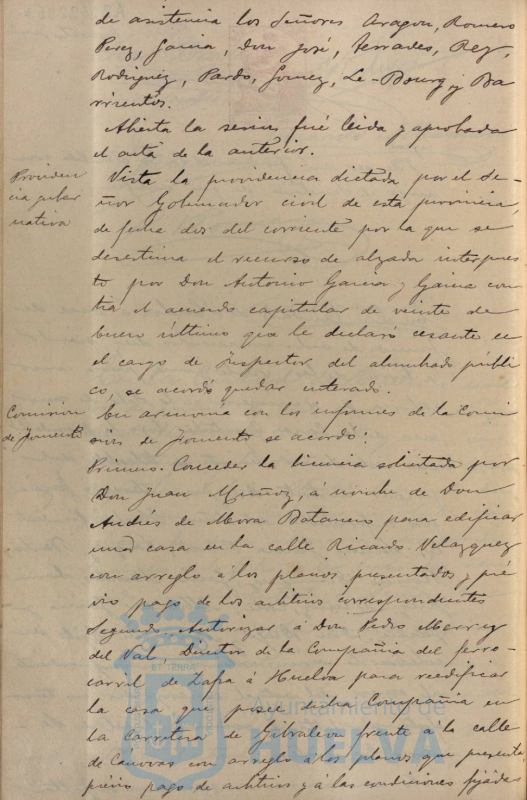 de asistencia los Señores Aragon, Romero
Perez, Garcia, Don José, Terrades, Rey,
Rodriguez, Pardo, Gomez, Le-Bourg y Ba
rrientos.
Abierta la sesion fué leida y aprobada
el acta de la anterior.
Providen
cia guber
nativa
Vista la providencia dictada por el Se-
ñor Gobernador civil de esta provincia,
de fecha dos del corriente por la que se
desestima el recurso de alzada interpues
to por Don Antonio Garcia y Garcia con
tra el acuerdo capitular de veinte de
Enero último que le declaró cesante en
el cargo de Inspector del alumbrado públi
co, se acordó quedar enterado.
Comision
de Fomento
En armonia con los informes de la Comi
sion de Fomento se acordó:
Primero. Conceder la licencia solicitada por
Don Juan Muñoz, á nombre de Don
Andrés de Mora Batanero para edificar
una casa en la calle Ricardo Velazquez
con arreglo á los planos presentados y pré
vio pago de los arbitrios correspondientes
Segundo. Autorizar á Don Pedro Merry
del Val, Director de la Compañia del ferro-
carril de Zafra á Huelva para reedificar
la casa que posee dicha Compañia en
la carretera de Gibraleon frente á la calle
de Cánovas con arreglo á los planos que presenta,
prévio pago de arbitrios y á las condiciones fijadas
ET TERRA
Ayuntamiento de
HUELVA